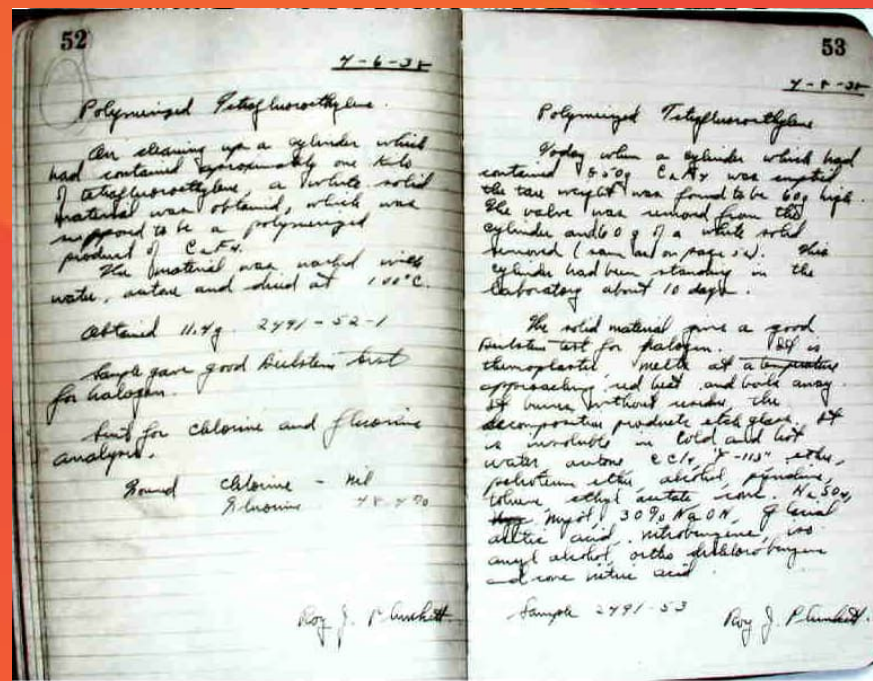 52
4-6-38
Polymerized Tetrafluoroethylene.
On cleaning up a cylinder which
had contained aproximately one kilo
of tetrafluoroethylene, a white solid
material was obtained, which was
supposed to be a polymerized
product of C2F4.
The material was washed with
water, acetone and dried at 100°C.
Obtained 11.4g. 2491-52-1
Sample gave good Beilstein test
for halogen.
Sent for chlorine and fluorine
analysis.
Found Chlorine - Nil
Fluorine
Roy J. Plunkett.
53
4-8-38
Polymerized Tetrafluoroethylene
Today when a cylinder which had
contained 850g C2F4 was emptied
the tare weight was found to be 60g high.
The valve was removed from the
cylinder and 60 g of a white solid
removed (same as on page 52). This
cylinder had been standing in the
laboratory about 10 days.
The solid material gives a good
Beilstein test for halogen. It is
thermoplastic melts at a temperature
approaching red heat and boils away.
It burns without residue the
decomposition products etch glass. It
is insoluble in cold and hot
water acetone CCl4 "F-113" ether,
petroleum ether alcohol, pyridine,
toluene ethyl acetate conc. H2SO4,
30% NaOH, glacial
acetic acid, nitrobenzene, iso
amyl alcohol, ortho dichlorobenzene
and conc nitric acid
Sample 2491-53
Roy J. Plunkett.